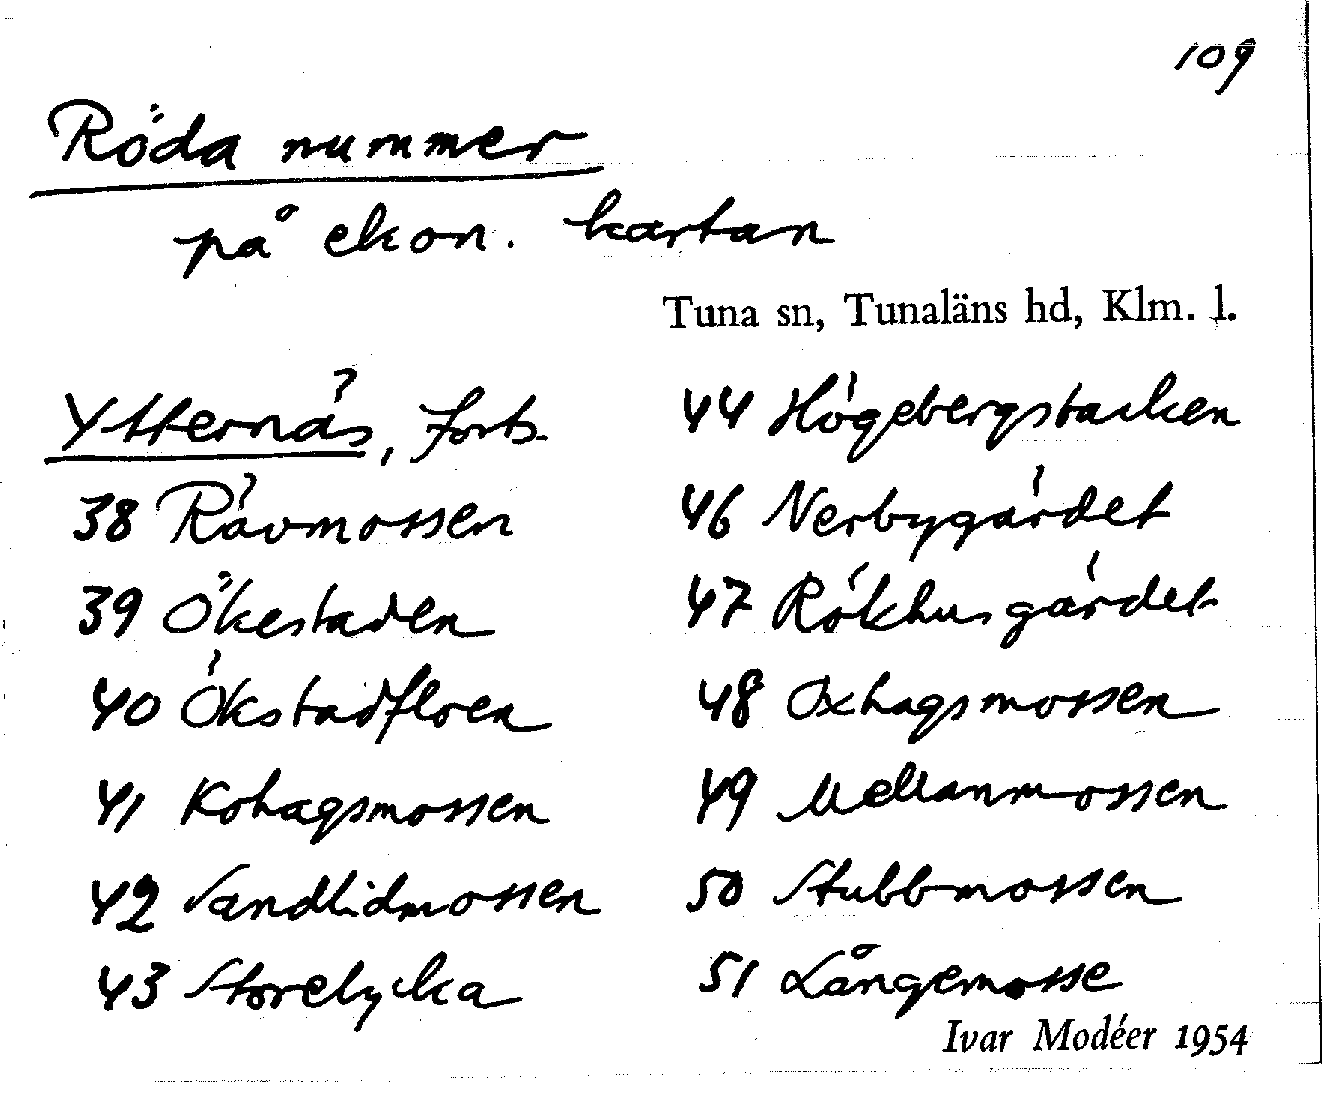 109
Röda nummer
på ekon. kartan
Tuna sn, Tunaläns hd, Klm. l.
Ytternäs, forts.
38 Rävmossen
39 Ökestaden
40 Ökstadfloen
41 Kohagsmossen
42 Sandlidmossen
43 Storelycka
44 Högebergstacken
46 Nerbygärdet
47 Rökhusgärdet
48 Oxhagsmossen
49 Mellanmossen
50 Stubbmossen
51 Långemosse
Ivar Modéer 1954